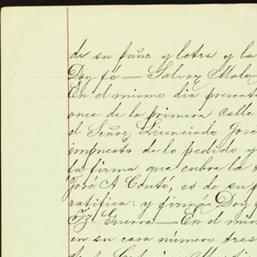 de su puño y letra y la
Doy fé — Galvez Mala
En el mismo dia presente
once de la primera calle
el Señor Licenciado Jose
impuesto de lo pedido y
la firma que cubre la
José A Coutó, es de su
ratifica: y firmó Doy
Guerra — En el mis
en su casa número tres